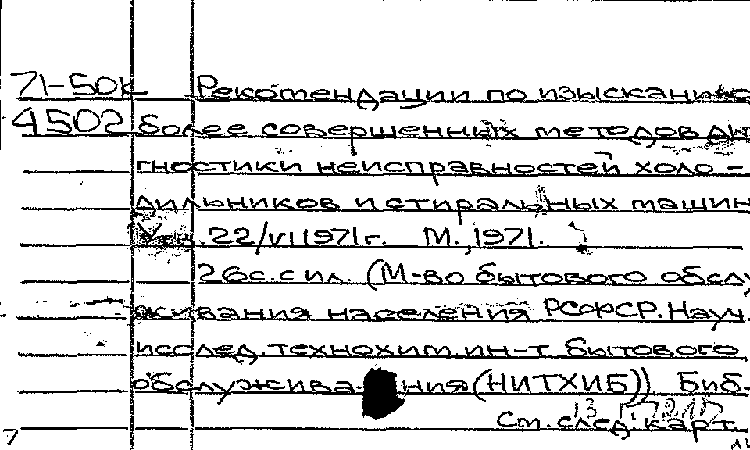 71-50к Рекомендации по изысканию
4502 более совершенных методов ди
гностики неисправностей холо-
дильников и стиральных машин
22/VI 1971г. М., 1971.
26с. с ил. (М-во бытового обслу
живания населения РСФСР. Науч.
исслед. технохим. ин-т бытового
обслужива-ния (НИТХИБ)). Биб-
См. след. карт.
7